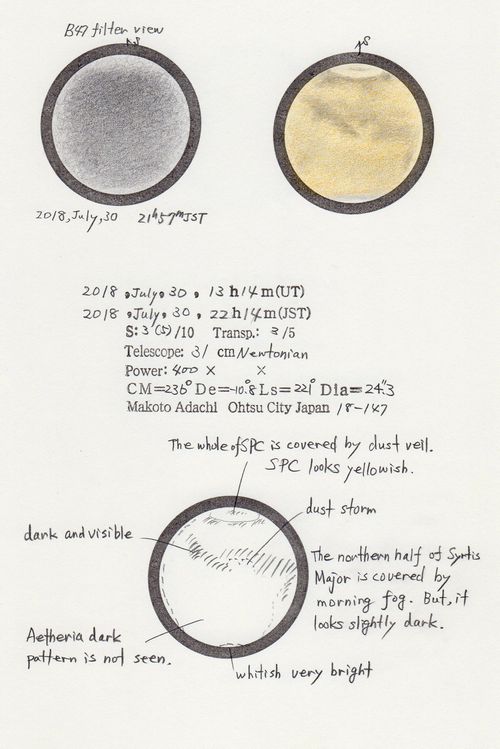 B47 filter view
S
S
2018, July, 30 21h57m JST
2018, July, 30, 13h14m(UT)
2018, July, 30, 22h14m(JST)
S: 3(5)/10 Transp.: 3/5
Telescope: 31 cm Newtonian
Power: 400 × ×
CM=236° De=-10.8° Ls=221° Dia=24."3
Makoto Adachi Ohtsu City Japan 18-147
The whole of SPC is covered by dust veil.
SPC looks yellowish.
dust storm
dark and visible
The northern half of Syrtis
Major is covered by
morning fog. But, it
looks slightly dark.
Aetheria dark
pattern is not seen.
whitish very bright